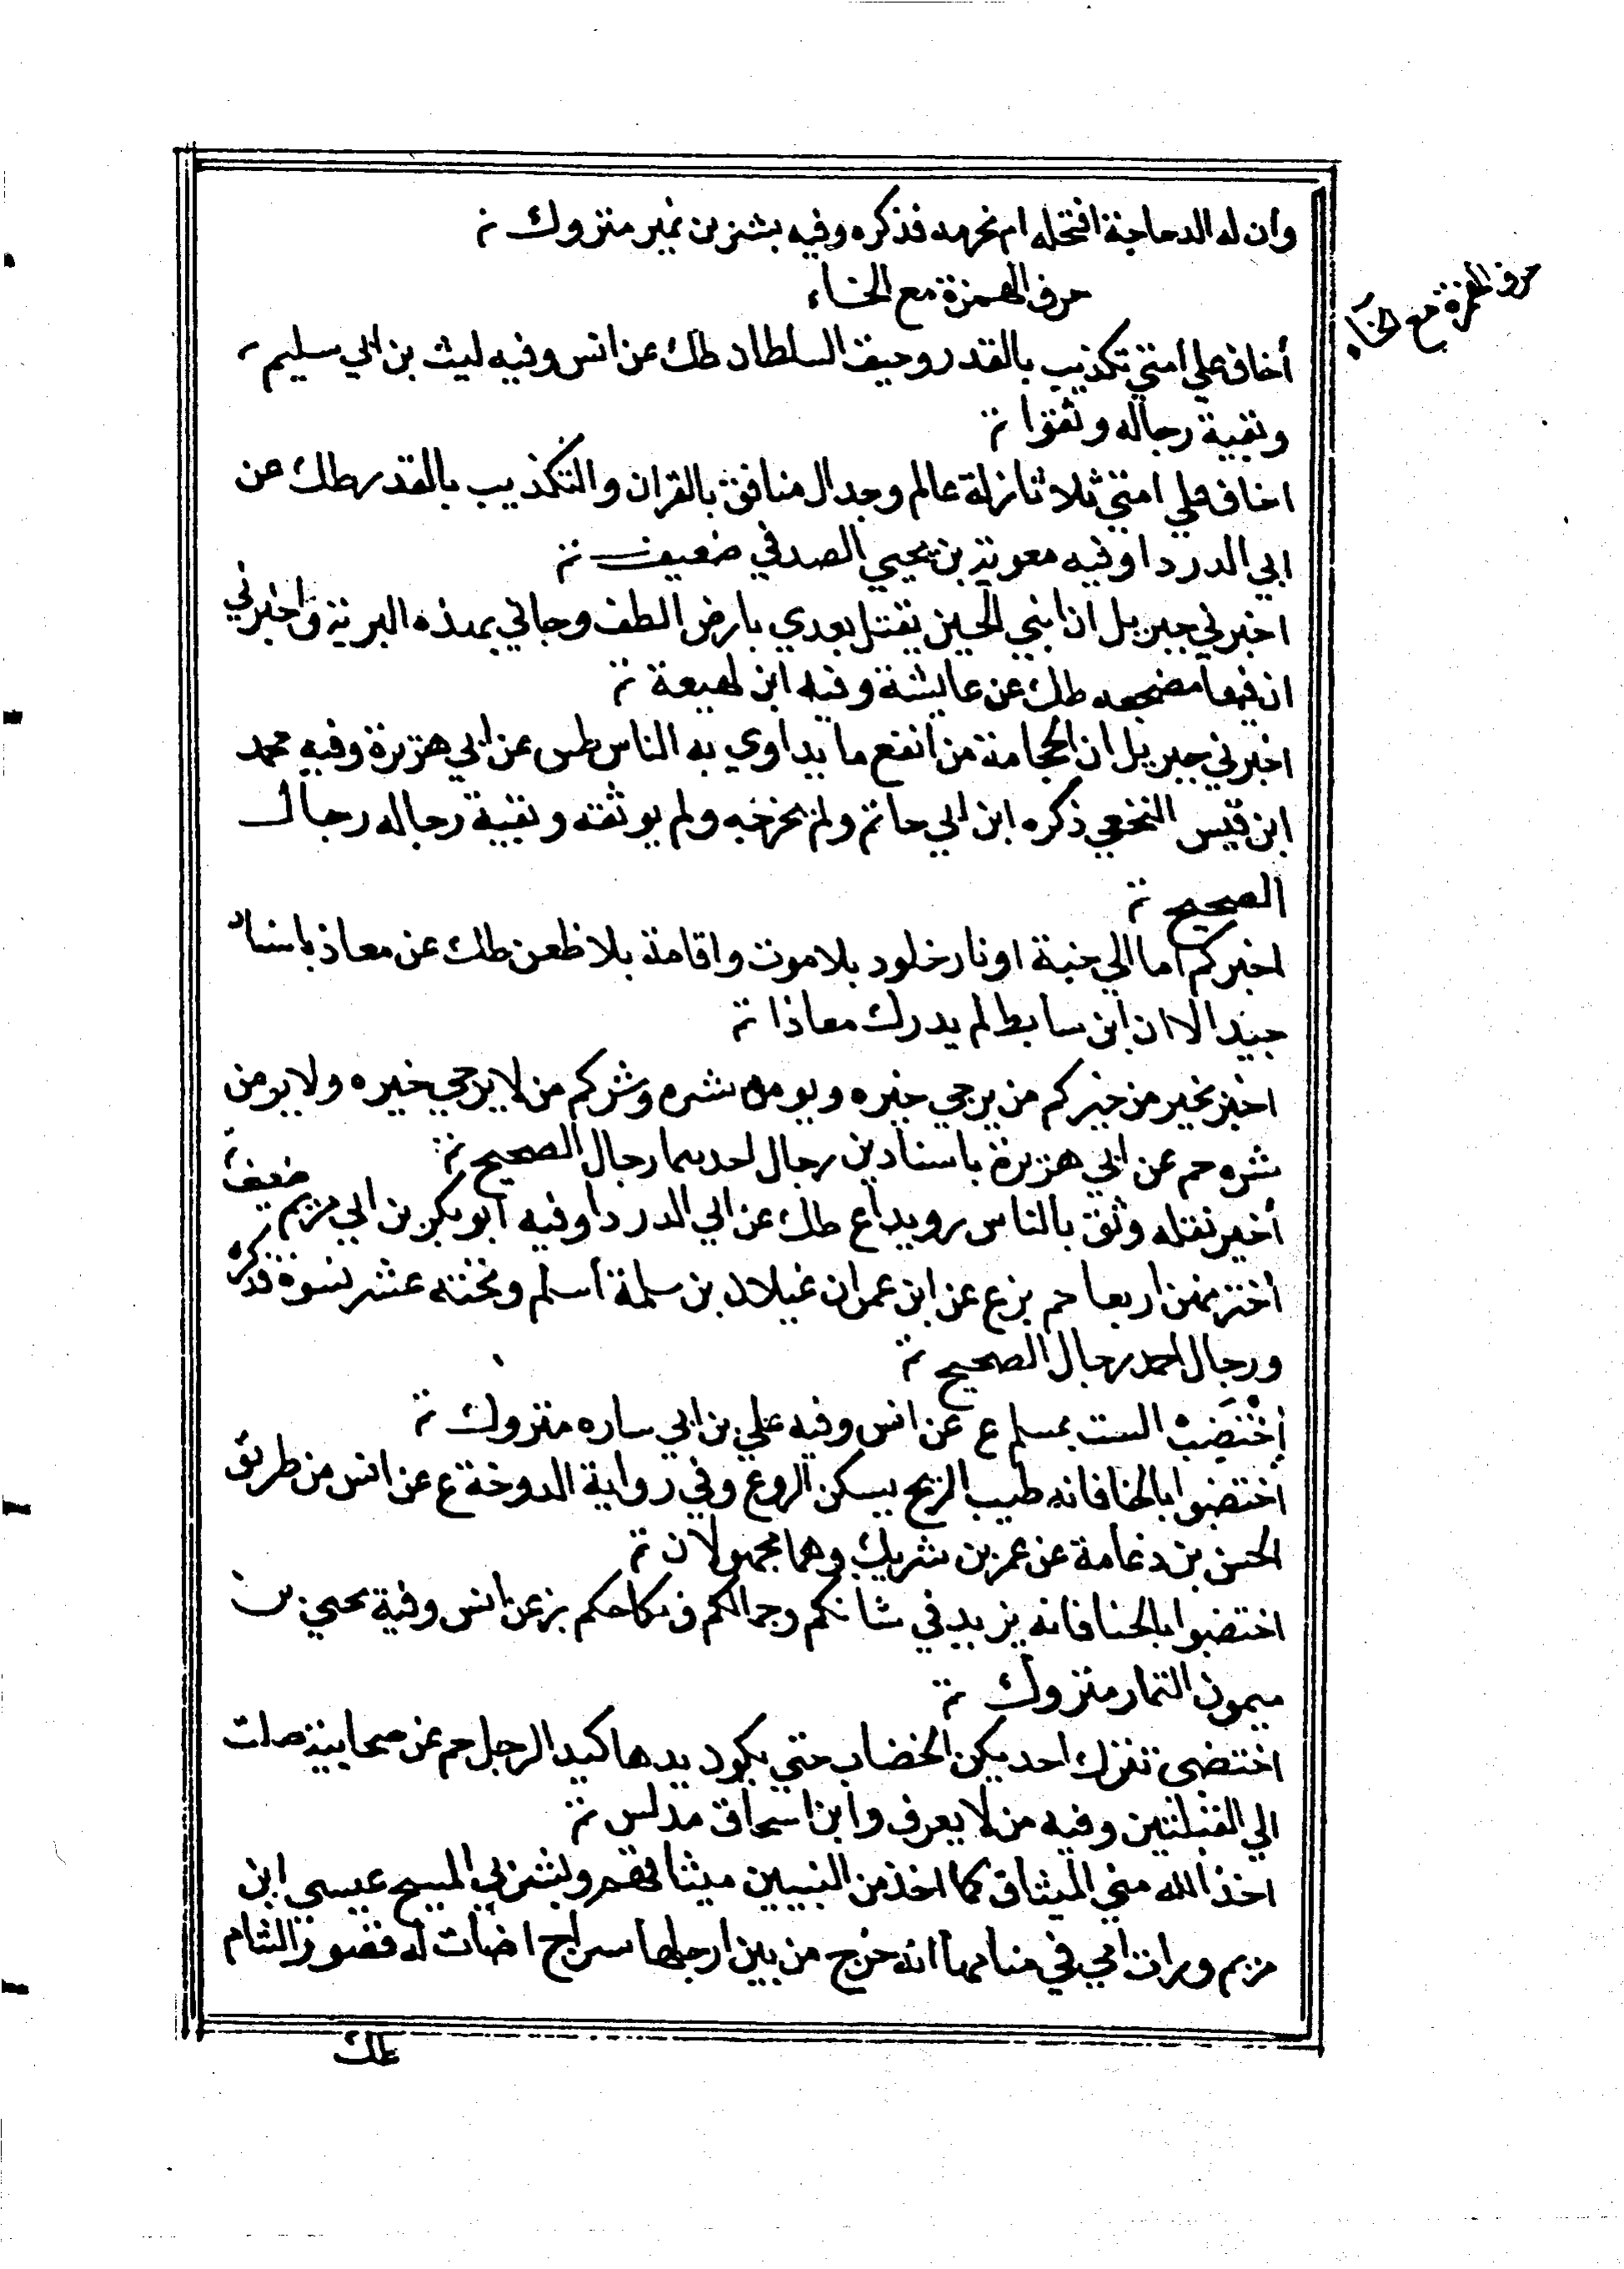 وان له الدجاجة افتحله ام نحرمه فذكره وفيه بشر بن نمير متروك
حرف الهمزة مع الخاء
حرف الهمزة مع الخاء
أخاف علي امتي تكذيب بالقدر وحيف السلطان طك عن انس وفيه ليث بن ابي سليم
وبقية رجاله وثقوا
اخاف علي امتي ثلاثا زلة عالم وجدال منافق بالقران والتكذيب بالقدر طك عن
ابي الدردا وفيه معوية بن يحيي الصدفي ضعيف
اخبرني جبريل ان ابني الحسين يقتل بعدي بارض الطف وجاني بهذه التربة واخبرني
ان فيها مضجعه طك عن عايشة وفيه ابن لهيعة
اخبرني جبريل ان الحجامة من انفع ما يداوي به الناس طس عن ابي هريرة وفيه محمد
ابن قيس النخعي ذكره ابن ابي حاتم ولم يخرجه ولم يوثقه وبقية رجاله رجال
الصحيح
اخبركم اما الي جنة او نار خلود بلا موت واقامة بلا ظعن طك عن معاذ باسناد
جيد الا ان ابن سابط لم يدرك معاذا
اخبر بخير من خيركم من يرجي خيره ويومن شره وشركم من لا يرجي خيره ولا يومن
شره حم عن ابي هريرة باسنادين رجال احدهما رجال الصحيح
أخبر تقله وثق بالناس رويداع طك عن ابي الدردا وفيه ابو بكر بن ابي مريم ضعيف
اختر منهن اربعا حم بزع عن ابن عمران غيلان بن سلمة أسلم وتحته عشر نسوة فذكره
ورجال احمد رجال الصحيح
اختضب الست بمسلم ع عن انس وفيه علي بن ابي ساره متروك
اختضبوا بالحنا فانه طيب الريح يسكن الروع وفي رواية الدوخة ع عن انس من طريق
الحسن بن دعامة عن عمر بن شريك وهما مجهولان
اختضبوا بالحنا فانه يزيد في شبابكم وجمالكم ونكاحكم بزعن انس وفية يحيي بن
ميمون التمار متروك
اختضبي تترك احديكن الخضاب حتي يكون يدها كيد الرجل حم عن صحابية صلت
الي القبلتين وفيه من لا يعرف وابن اسحاق مدلس
اخذ الله مني الميثاق كما اخذ من النبيين ميثاقهم وبشر بي المسيح عيسي ابن
مريم ورات امي في منامها انه خرج من بين ارجلها سراج اضات له قصور الشام
طك